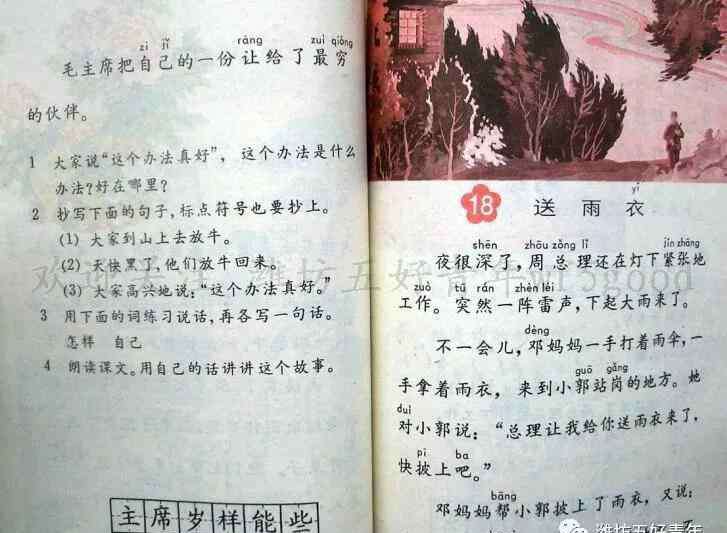 zì jǐ ràng zuì qióng
毛主席把自己的一份让给了最穷
的伙伴。
1 大家说“这个办法真好”，这个办法是什么
办法？好在哪里？
2 抄写下面的句子，标点符号也要抄上。
(1) 大家到山上去放牛。
(2) 天快黑了，他们放牛回来。
(3) 大家高兴地说：“这个办法真好。”
3 用下面的词练习说话，再各写一句话。
怎样 自己
4 朗读课文。用自己的话讲讲这个故事。
主席岁样能些
yī
18 送雨衣
shēn zhōu zǒng lǐ jǐn zhāng
夜很深了，周总理还在灯下紧张地
zuò tū rán zhèn léi
工作。突然一阵雷声，下起大雨来了。
dèng
不一会儿，邓妈妈一手打着雨伞，一
guō gǎng
手拿着雨衣，来到小郭站岗的地方。她
duì
对小郭说：“总理让我给你送雨衣来了，
pī ba
快披上吧。”
bāng
邓妈妈帮小郭披上了雨衣，又说：
潍坊五好青年